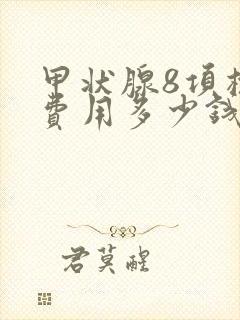 甲状腺8项
费用多少钱
君莫醒